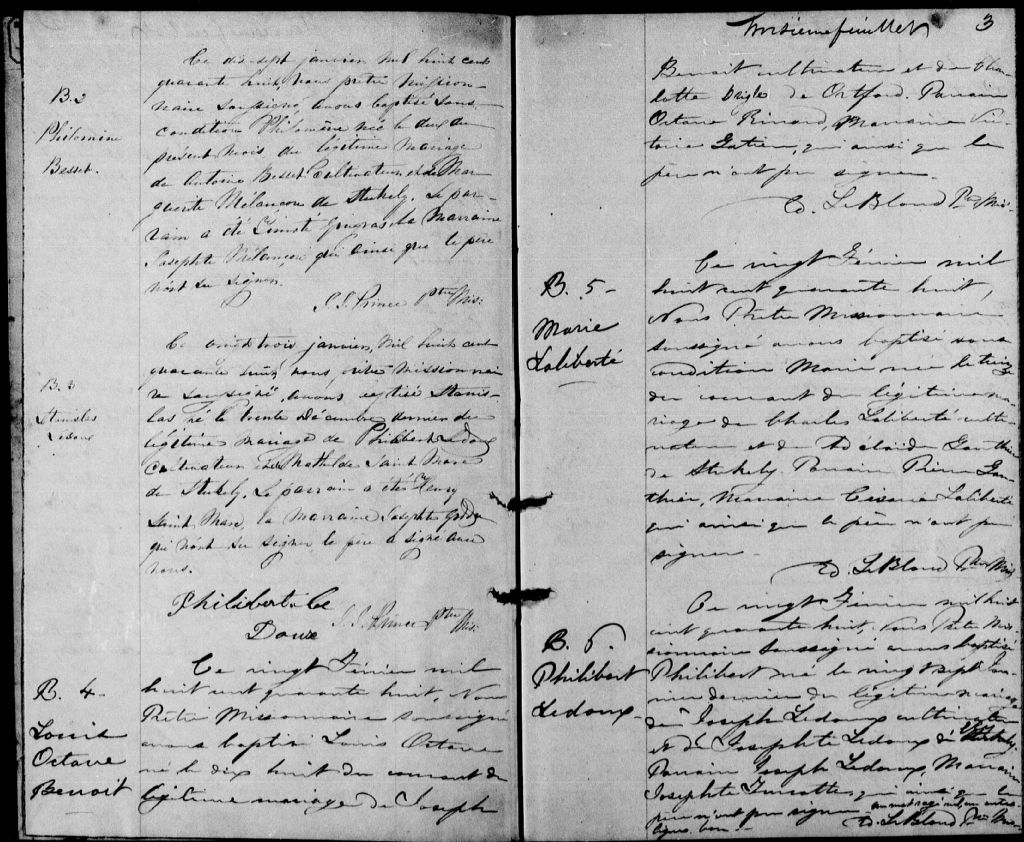 B. 2
Philomine
Besset.
Ce dix-sept janvier mil huit cent
quarante huit, nous prêtre mission-
naire soussigné, avons baptisé sous
condition Philomène née le deux du
présent mois, du légitime mariage
de Antoine Besset Cultivateur et de Mar-
guerite Mélançon de Stukely. Le par-
rain a été et la Marraine
Josephte Mélançon qui ainsi que le père
n'ont su signer.
J. J. Prince ptre Mis.
B. 3
Stanislas
Ledoux
Ce vingt trois janvier, mil huit cent
quarante huit, nous, prêtre missionnai-
re soussigné, avons baptisé Stanis-
las né le trente Décembre dernier du
légitime mariage de Philibert Ledoux
Cultivateur et de Mathilde Saint Marc
de Stukely. Le parrain a été Henry
Saint Marc, la marraine Josephte
qui n'ont su signer, le père a signé avec
nous.
Philibert Le
Doux
J. J. Prince ptre Mis.
B. 4-
Louis
Octave
Benoit
Ce vingt Février mil
huit cent quarante huit, Nous
Prêtre Missionnaire soussigné
avons baptisé Louis Octave
né le dix huit du courant du
légitime mariage de Joseph
Troisieme feuillet
3
Benoit cultivateur et de Char
lotte Daigle de Orford. Parrain
Octave Marraine Vic-
toire Gatien, qui ainsi que le
père n'ont pu signer.
Ed. LeBlond Ptre Mis-
B. 5-
Marie
Laliberté
Ce vingt Février mil
huit cent quarante huit,
Nous Prêtre Missionnaire
soussigné avons baptisé sous
condition Marie née le treize
du courant du légitime ma-
riage de Charles Laliberté culti-
vateur et de Adélaide Gauthier
de Stukely. Parrain Pierre Gau
thier, Marraine Césarie Laliberté
qui ainsi que le père n'ont pu
signer-
Ed. LeBlond Ptre Mis
B. 6.
Philibert
Ledoux-
Ce vingt Février mil huit
cent quarante huit, Nous Prêtre Mis-
sionnaire soussigné avons baptisé
Philibert né le vingt sept Jan-
vier dernier du légitime mariage
de Joseph Ledoux cultivateur
et de Josephte Ledoux de Stukely.
Parrain Joseph Ledoux, Marraine
Josephte Turcotte qui ainsi que le
père n'ont pu signer un mot rayé nul, un entre
ligne bon-
Ed. LeBlond Ptre Mis-